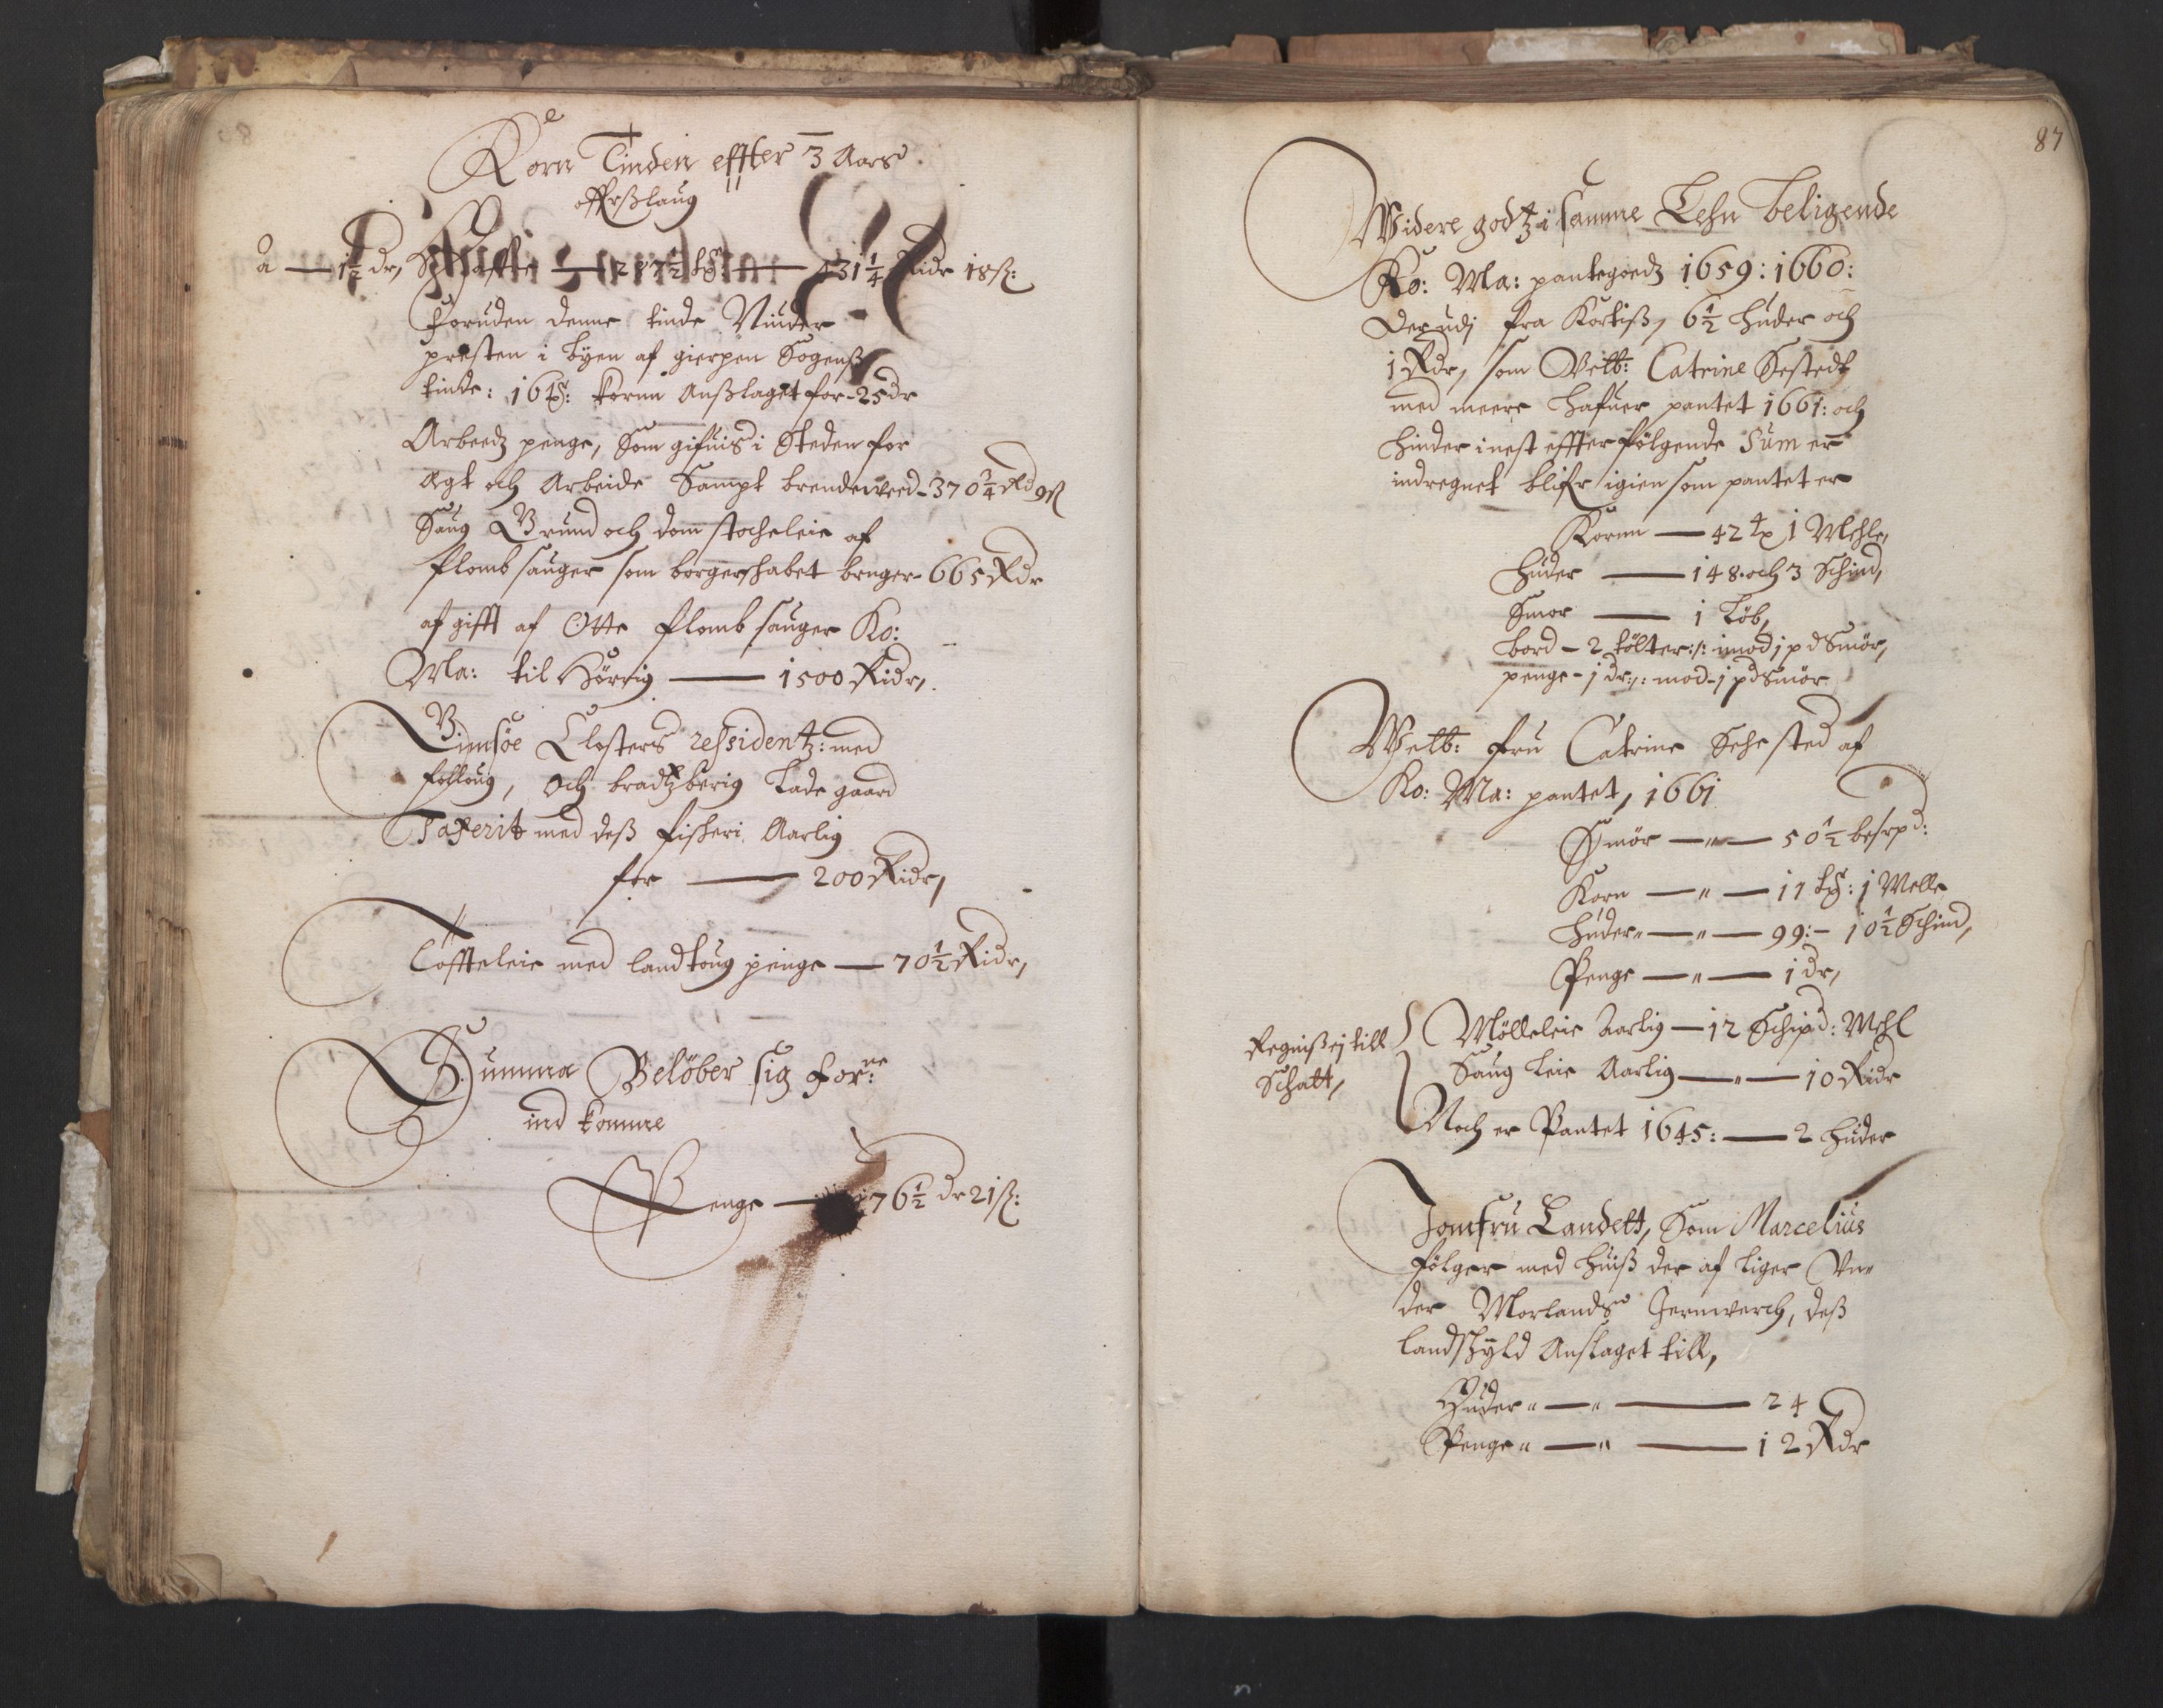 Korn Tinden effter 3 Aars
offerslaug
a — 1½ dr, — 287½ tr — 431¼ Ridr 18ß:
Foruden denne tinde Niuder
presten i byen af gierpen Sogenß
tinde: 16 tr: kornn Anßlaget for - 25 dr
Arbeedz penge, Som gifuis i Steden for
Ægt och Arbeide Sampt brendeveed - 370¾ Rd 9ß
Saug Grund och dom stocheleie af
flomb sauger som borgerskabet bruger - 665 Rdr
af gifft af Otte flomb sauger Ko:
Ma: til hørrig — 1500 Ridr,
Gimsøe Closters ressidentz: med
folloug, och bradtzberig Lade gaard
Taxerit med deß fiskeri Aarlig
for — 200 Ridr,
Tøffteleie med landtoug penge — 70½ Ridr,
Summa Beløber sig for:ne
ind komme
Penge — 76½ dr 21ß:
87
Widere godtz i samme Lehn beligende
Ko: Ma: pantegoedz 1659: 1660:
Der udj fra Kortiß, 6½ huder och
1 Rdr, som Velb: Catrine Sestedt
med meere hafuer pantet 1661: och
hinder i nest effterfølgende Sum er
indregnet blifr igien som pantet er
Kornn — 42 tr 1 Mehle,
Huder — 148. och 3 Schind,
Smør — 1 Løb,
bord — 2 tølter:/: imod 1 pd Smør,
penge - 1 dr:/: mod - 1 pd Smør
Welb: fru Catrine Sehested af
Ko: Ma: pantet, 1661
Smør — " — 50½ bespd:
Korn — " — 17 tr: 1 Melle
Huder " — " — 99: - 10½ Schind,
Penge — " — 1 dr,
Regniß ej till
Schatt,
Mølleleie Aarlig — 12 Schipd: Mehl
Saug leie Aarlig — " — 10 Ridr
Noch er Pantet 1645: — 2 huder
Jomfru Landett, Som Marcelius
følger med huiß der af liger Un"
der Morlands Jernverch, deß
landskyld Anslaget till,
Huder " — " — 24
Penge " — " — 12 Rdr